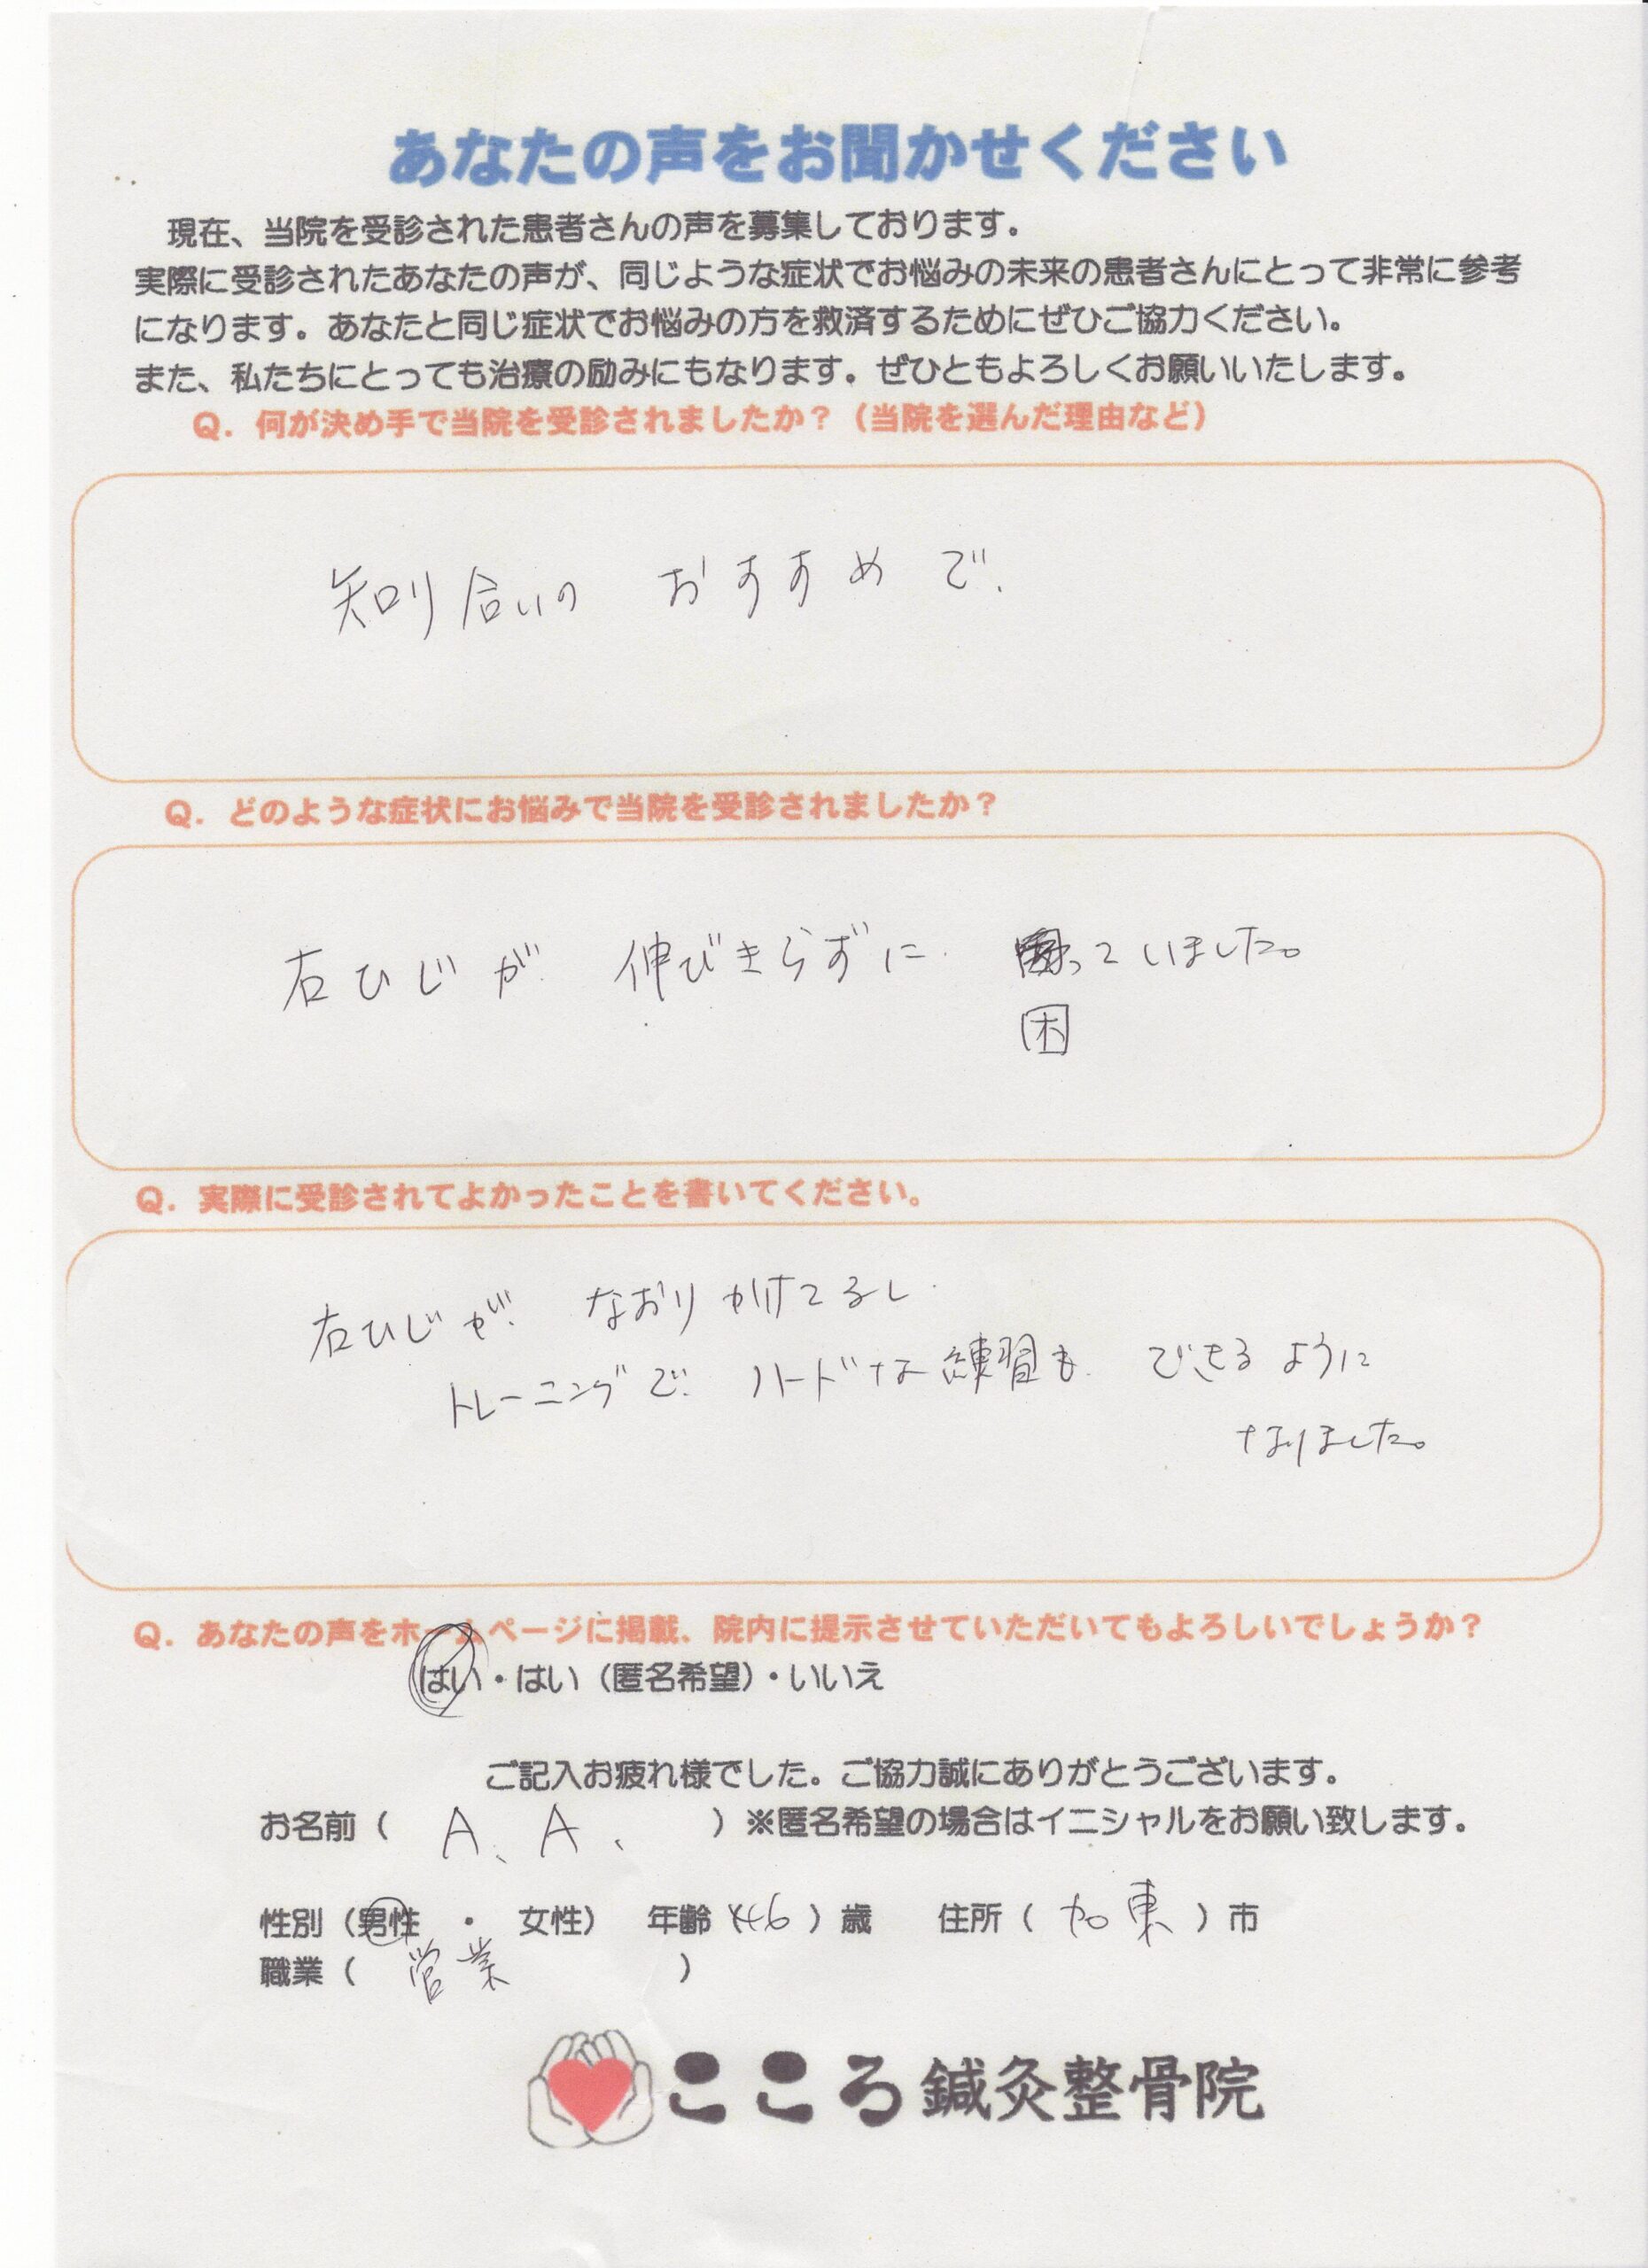 あなたの声をお聞かせください
現在、当院を受診された患者さんの声を募集しております。
実際に受診されたあなたの声が、同じような症状でお悩みの未来の患者さんにとって非常に参考
になります。あなたと同じ症状でお悩みの方を救済するためにぜひご協力ください。
また、私たちにとっても治療の励みにもなります。ぜひともよろしくお願いいたします。
Q．何が決め手で当院を受診されましたか？（当院を選んだ理由など）
知り合いの おすすめ で、
Q．どのような症状にお悩みで当院を受診されましたか？
右ひじが 伸びきらずに っていました。
困
Q．実際に受診されてよかったことを書いてください。
右ひじが なおりかけてるし
トレーニングで ハードな練習も できるように
なりました。
Q．あなたの声をホームページに掲載、院内に提示させていただいてもよろしいでしょうか？
はい・はい（匿名希望）・いいえ
ご記入お疲れ様でした。ご協力誠にありがとうございます。
お名前（ A、A、 ）※匿名希望の場合はイニシャルをお願い致します。
性別（男性 ・ 女性） 年齢（46）歳 住所（ 加東 ）市
職業（ 営業 ）
こころ鍼灸整骨院